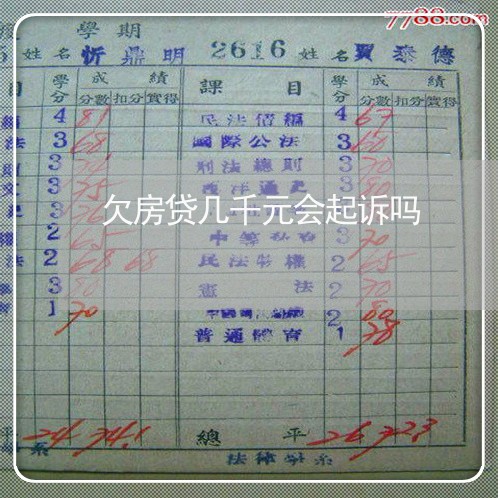 7788.com
學期
姓名 忻鼎明 2616 姓名 賈泰德
目 學分 成績 課目 學分 成績
分數 扣分 實得 分數 扣分 實得
4 81 民法債編 4 67
法 3 68 國際公法 3 60
3 刑法總則 3 70
3 75 西洋通史 3 80
3
欠房貸几千元会起诉吗
2 65 3 70
法 2 68 68 民法物權 2 65
3 80 憲法 2 70
1 70 2 80
普通體育 1 78
平 24 74.1 總平 26 72.3
系 法律學系